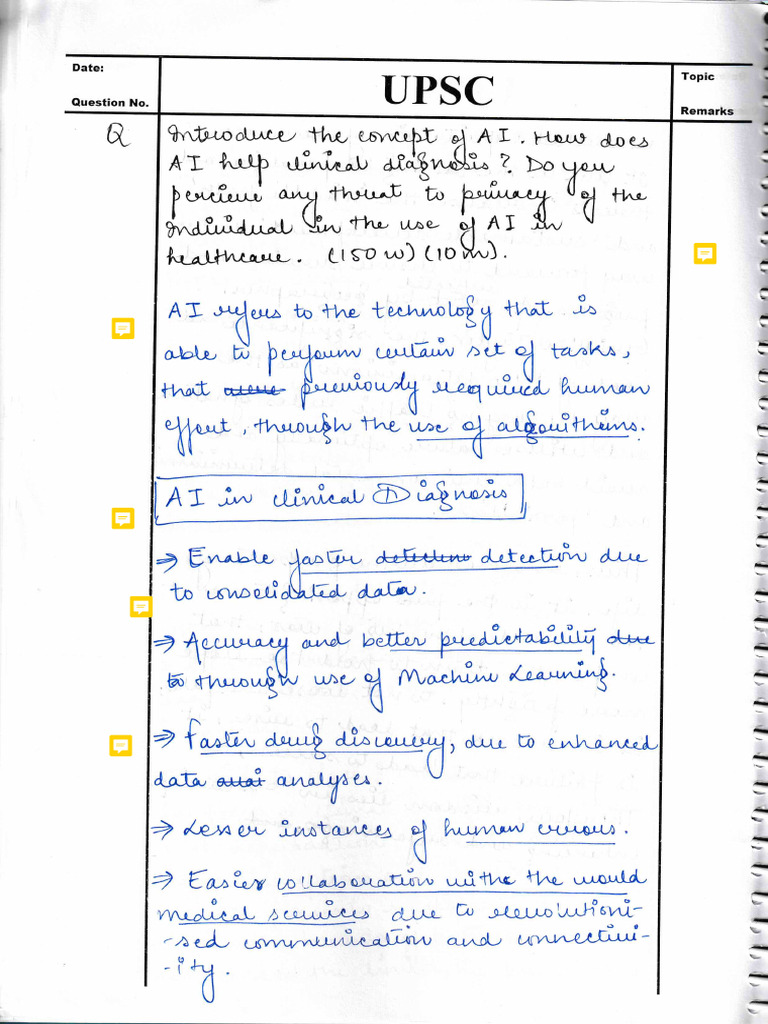 Date:
Question No.
UPSC
Topic
Remarks
Q Introduce the concept of AI. How does
AI help clinical diagnosis? Do you
percieve any threat to privacy of the
individual in the use of AI in
healthcare. (150 w) (10 m).
AI refers to the technology that is
able to perform certain set of tasks,
that previously required human
effort, through the use of algorithims.
AI in clinical Diagnosis
⇒ Enable faster detection due
to consolidated data.
⇒ Accuracy and better predictability due
to through use of Machine Learning.
⇒ Faster drug discovery, due to enhanced
data analyses.
⇒ Lesser instances of human errors.
⇒ Easier collaboration with the world
medical services due to revolutioni-
-sed communication and connectivi-
-ity.